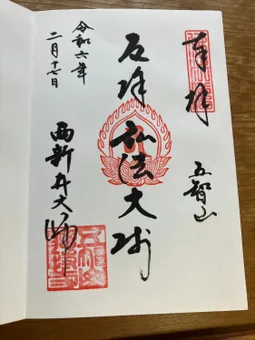 奉拝
五智山
厄除弘法大師
令和六年
二月十七日
西新井大師